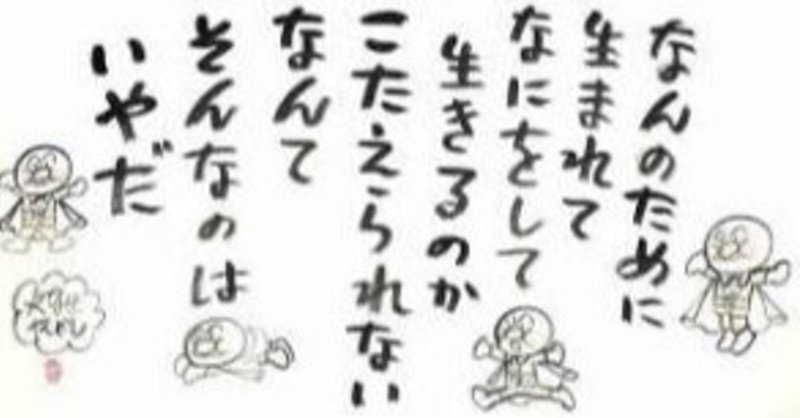 なんのために
生まれて
なにをして
生きるのか
こたえられない
なんて
そんなのは
いやだ
やなせ
たかし